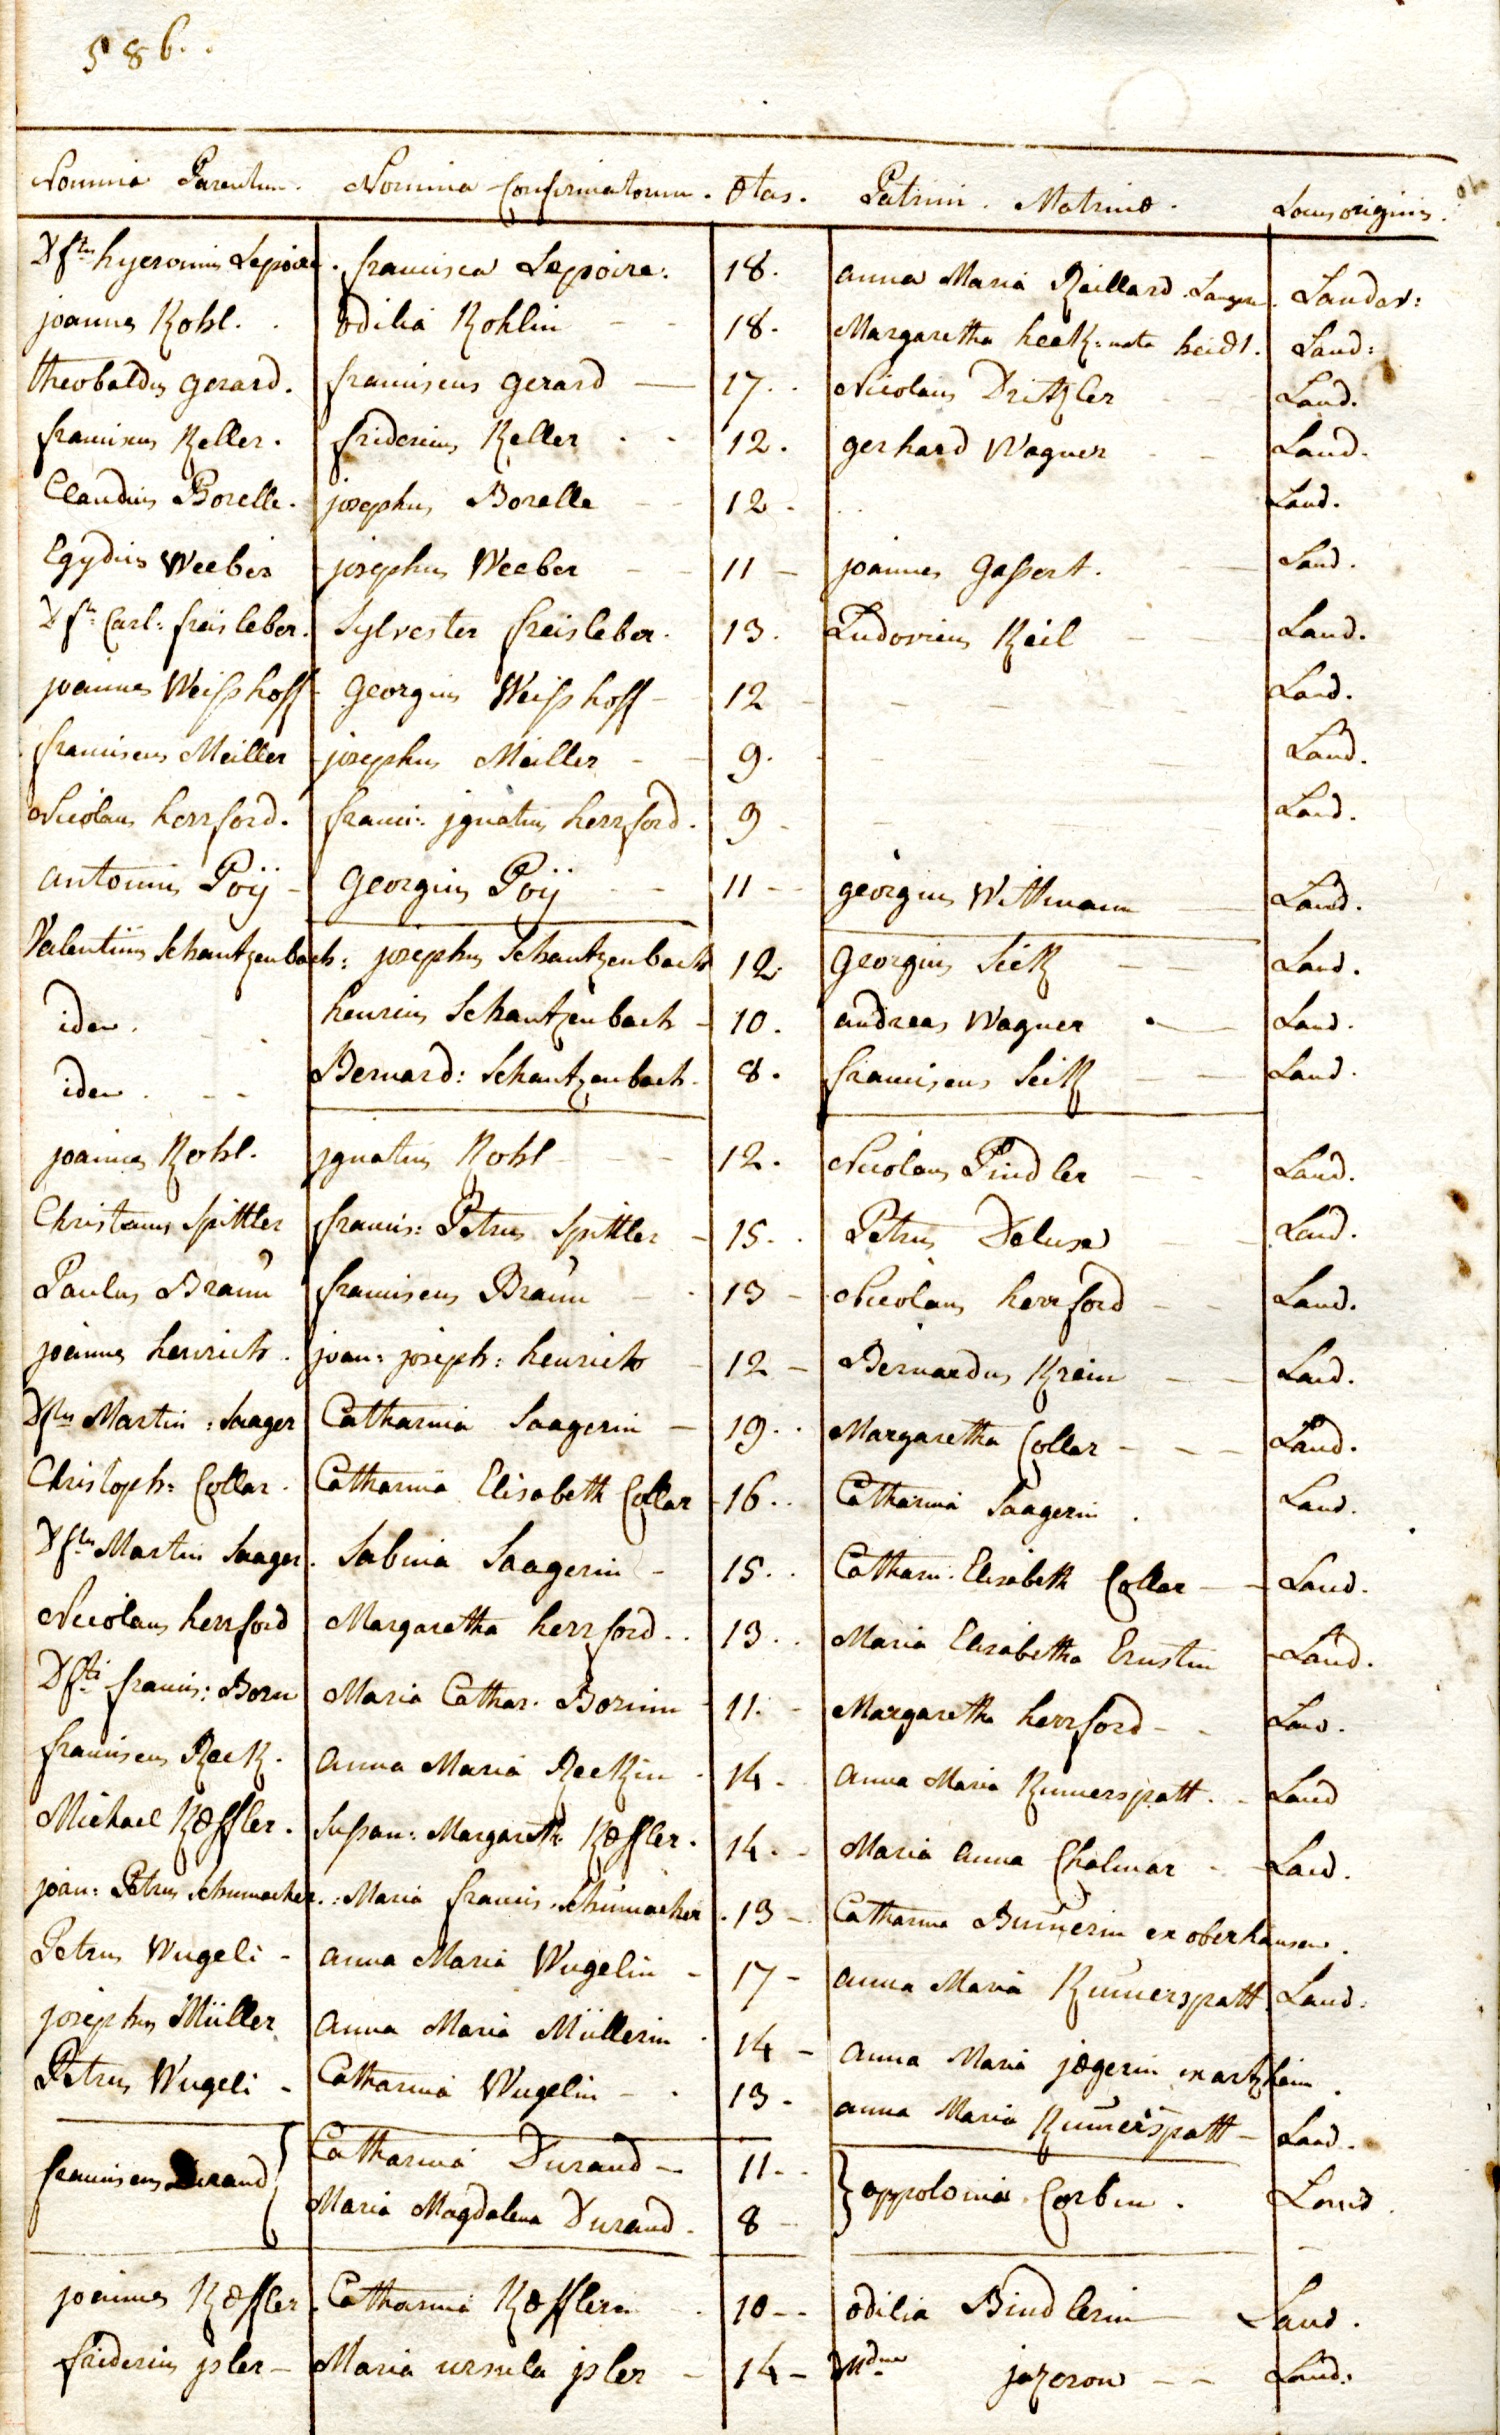 586..
Nomina Parentum. Nomina Confirmatorum. ætas. Patrini. Matrinæ. Locus originis.
Dftus hyeronimus Lepoire. francisca Lepoire. 18. anna Maria Raillard. Landav:
joannes Kohl. odilia Kohlin - - 18. Margaretha heck: nata heidt. Land:
theobaldus gerard. franciscus gerard — 17.. Nicolaus Dritzler - - Land.
franciscus Keller. fridericus Keller . . 12. gerhard Wagner - - Land.
Claudius Borelle. josephus Borelle - - 12. .. Land.
Egydius Weeber josephus Weeber - - 11 - joannes gassert. - — Land.
Dfti Carl: freisleber. Sylvester freisleber. 13. Ludovicus Keil - - Land.
joannes Weisshoff - georgius Weisshoff - 12 - - - - - - Land.
franciscus Meiller josephus Meiller - - 9. - - - Land.
Nicolaus herrford. franci: jgnatius herrford. 9 - - - - - Land.
antonius Poÿ - georgius Poÿ - - 11 -- georgius Wittmann — Land.
Valentinus Schantzenbach: josephus Schantzenbach 12. georgius Seitz - — Land.
idem. - . henricus Schantzenbach - 10. andreas Wagner . — Land.
idem. - - Bernard: Schantzenbach. 8. franciscus Seitz - — Land.
joannes Kohl. jgnatius Kohl - - - 12. Nicolaus Pindler - - Land.
Christianus Spittler francis: Petrus Spittler - 15.. Petrus Deluse - - Land.
Paulus Braun franciscus Braun - . 13 - Nicolaus herrford - - Land.
joannes henrich. joan: joseph: henrich - 12 - Bernardus Krein - - Land.
Dftus Martin: Saager Catharina Saagerin - 19.. Margaretha Collar - - - Land.
Christoph: Collar. Catharina Elisabeth Collar - 16.. Catharina Saagerin . Land.
Dftus Martin Saager. Sabina Saagerin - 15.. Catharin. Elisabeth Collar - - Land.
Nicolaus herrford Margaretha herrford.. 13.. Maria Elisabetha Ernstin - Land.
Dfti francis: Born Maria Cathar. Bornin - 11. - Margaretha herrford - - Land.
franciscus Reck. anna Maria Reckin . 14 - anna Maria Kunerspatt. - Land
Michael Kæffler. Sussan: Margareth: Kæffler. 14. - Maria anna Chalmar - - Land.
joan: Petrus Schumacher. : Maria francis. Schumacher . 13 - Catharina Brunnerin ex oberhausen.
Petrus Wugeli - anna Maria Wugelin - 17 - anna Maria Kunerspatt Land.
josephus Müller anna Maria Müllerin . 14 - anna Maria jægerin ex artzheim.
Petrus Wugeli - Catharina Wugelin - . 13 - anna Maria Kunerspatt - Land.
franciscus Durand { Catharina Durand - 11.. } appolonia Corbin. Land.
Maria Magdalena Durand. 8 -
joannes Kæffler. Catharina Kæfflerin . 10 -- odilia Bindlerin Land.
fridericus jsler - Maria ursula jsler - 14 - jazeron - - Land.